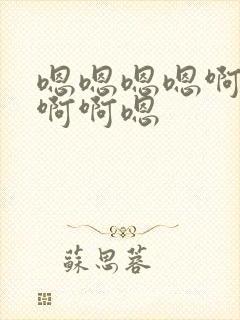 嗯嗯嗯嗯啊
啊啊嗯
蘇思蓉